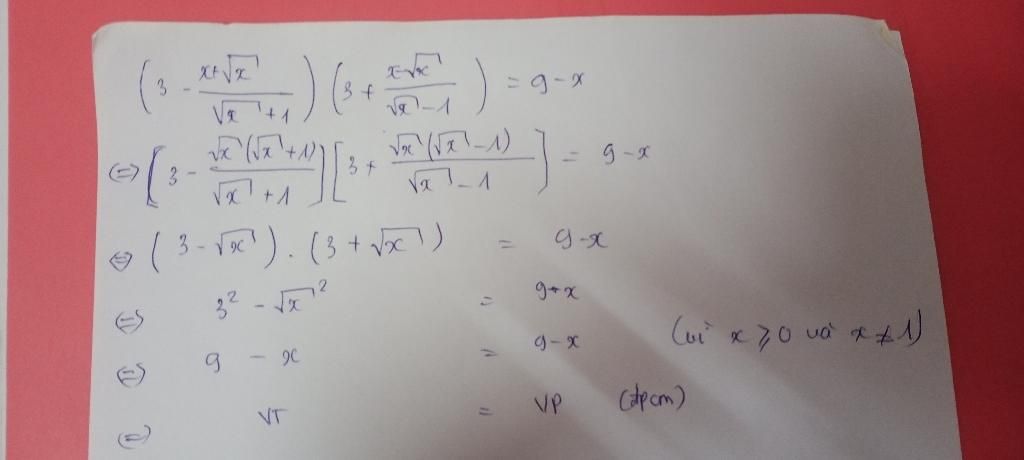 (3 - (x+√x)/(√x+1)) (3 + (x-√x)/(√x-1)) = 9-x
(=) [3 - √x(√x+1)/(√x+1)] [3 + √x(√x-1)/(√x-1)] = 9-x
⇔ (3-√x).(3+√x) = 9-x
(=) 3² - √x² = 9+x
(=) 9 - x = 9-x (vì x ⩾ 0 và x ≠ 1)
(=) VT = VP (đpcm)